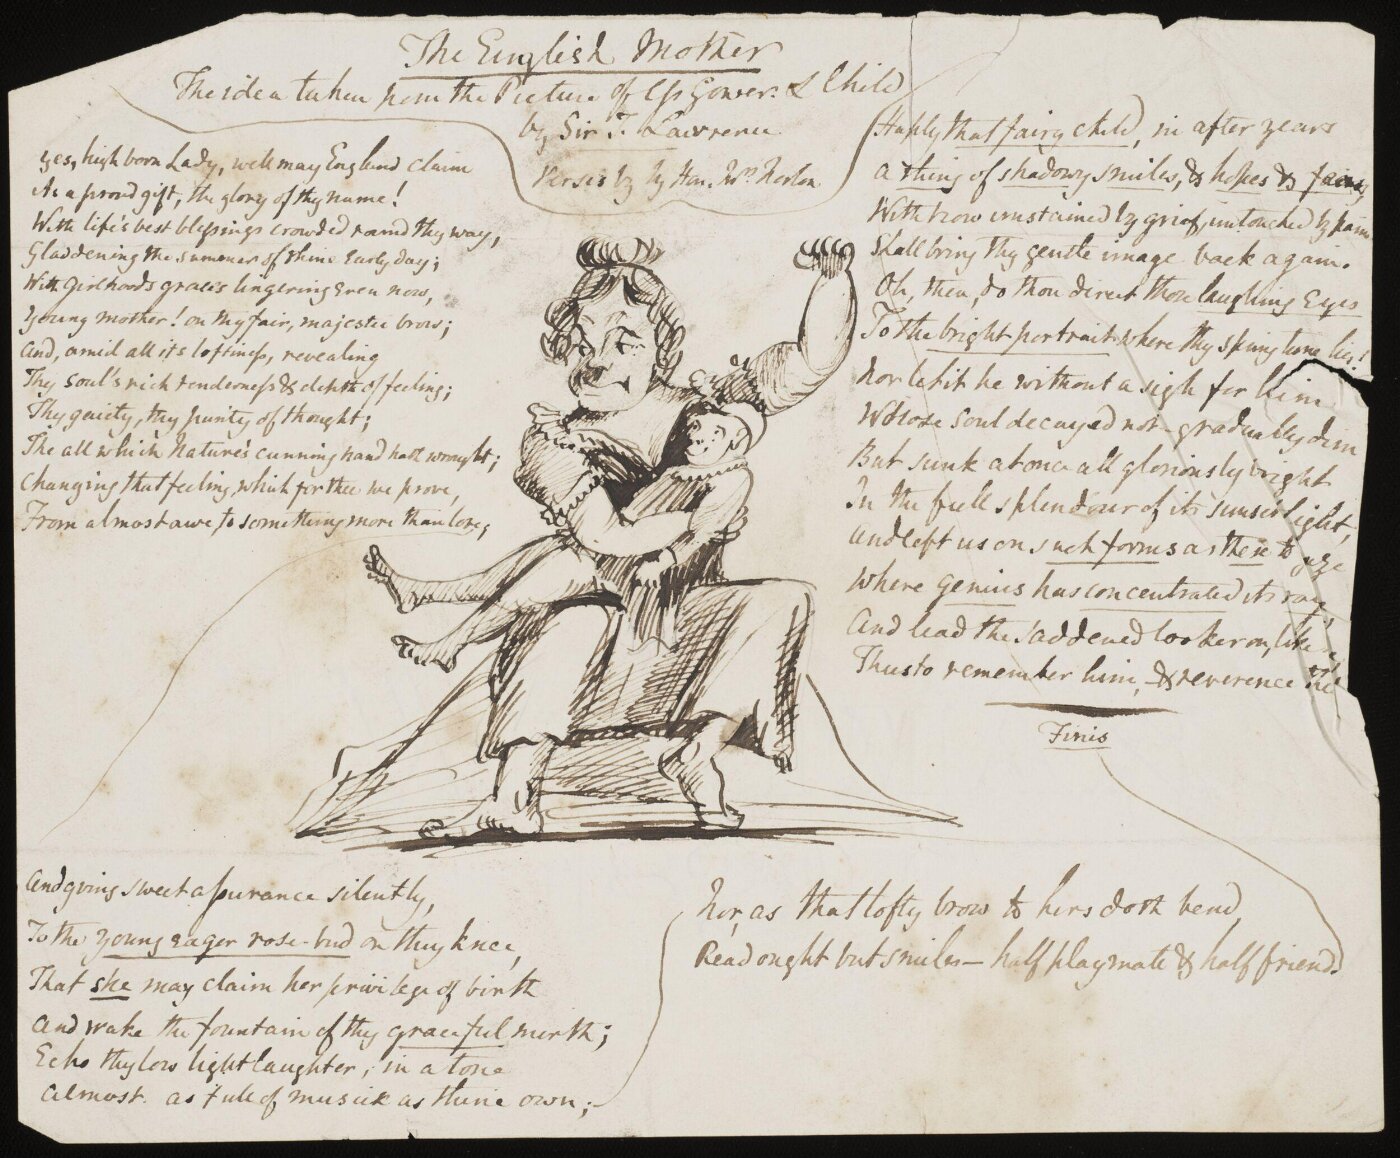 The English Mother
The idea taken from the Picture of Css Gower & Child
by Sir T. Lawrence
Verses by Hon. Norton
Yes, high born Lady, well may England claim
As a proud gift, the glory of thy name!
With life's best blessings crowded round thy way,
Gladdening the summer of thine Early day;
With girlhoods graces lingering Even now,
Young mother! on thy fair, majestic brow;
And, amid all its loftiness, revealing
Thy soul's rich tenderness & depth of feeling;
Thy gaiety, thy purity of thought;
The all which Nature's cunning hand hath wrought;
Changing that feeling, which for thee we prove,
From almost awe to something more than love;
And giving sweet assurance silently,
To the young eager rose-bud on thy knee,
That she may claim her privilege of birth
And wake the fountain of thy graceful mirth;
Echo thy low light laughter, in a tone
Almost as full of musick as thine own;
Nor, as that lofty brow to hers doth bend,
Read ought but smiles— half playmate & half friend.
Haply that fairy child, in after years
A thing of shadowy smiles, & hopes &
With brow unstained by grief, untouched by pain
Shall bring thy gentle image back again.
Oh, then, do thou direct thou laughing Eyes
To the bright portrait where thy spring time lies!
Nor let it be without a sigh for him
Whose soul decayed not gradually dim
But sunk at once all gloriously bright
In the full splendour of its sunset light,
And left us on such forms as these to gaze
Where genius has concentrated its rays,
And lead the saddened looker on, like
Thus to remember him, & reverence
Finis